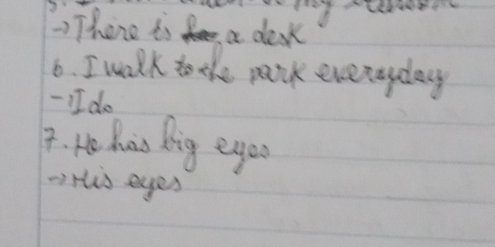 my
-> There is a desk
6. I walk to the park everyday
-> I do
7. He has big eyes
-> His eyes